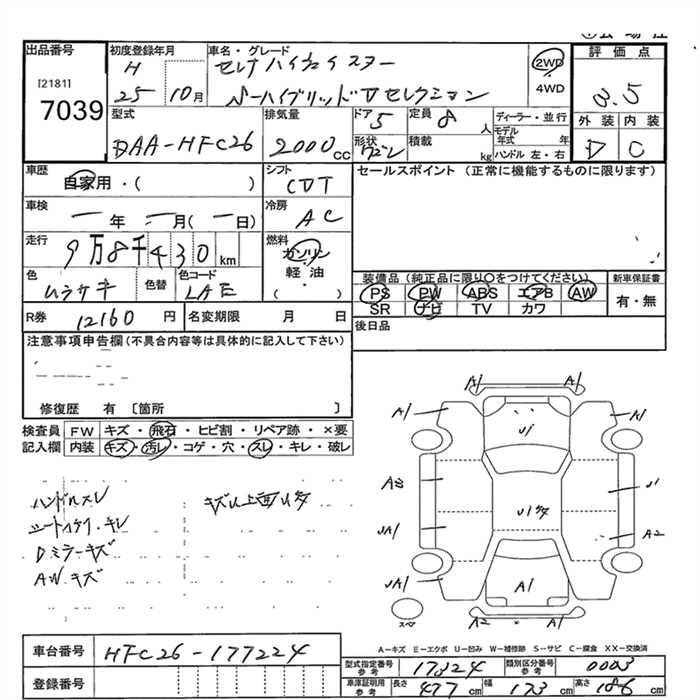 出品番号 初度登録年月 車名・グレード 評価点
[2181] H セレナ ハイウェイスター 2WD 3.5
7039 25 10月 S-ハイブリッド Vセレクション 4WD
型式 排気量 ドア 5 定員 8 人 ディーラー・並行 外装 内装
DAA-HFC26 2000cc 形状 積載 kg モデル年式 年 ハンドル 左・右 D C
車歴 シフト セールスポイント (正常に機能するものに限ります)
自家用・( ) CVT
車検 冷房
一 年 一 月(一日) AC
走行 燃料
9万8千430km ガソリン
色 色替 色コード 軽油 装備品(純正品に限り○をつけてください) 新車保証書
ムラサキ LAE ( ) PS PW ABS エアB AW 有・無
SR ナビ TV カワ
R券 12160円 名変期限 月 日 後日品
注意事項申告欄(不具合内容等は具体的に記入して下さい)
修復歴 有 〔箇所 〕
検査員 FW キズ・飛石・ヒビ割・リペア跡・×要
記入欄 内装 キズ・汚レ・コゲ・穴・スレ・キレ・破レ
ハンドルスレ
シート
Dミラーキズ
AWキズ
A1 A1
A1 A1
U1
U1
A2
A1
A2 A1
スペア
A-キズ E-エクボ U-凹み W-補修跡 S-サビ C-腐食 XX-交換済
車台番号 HFC26-177224
型式指定番号 参考 17324 類別区分番号 参考 0003
登録番号
車庫証明用 参考 長さ 477cm 幅 173cm 高さ 186cm